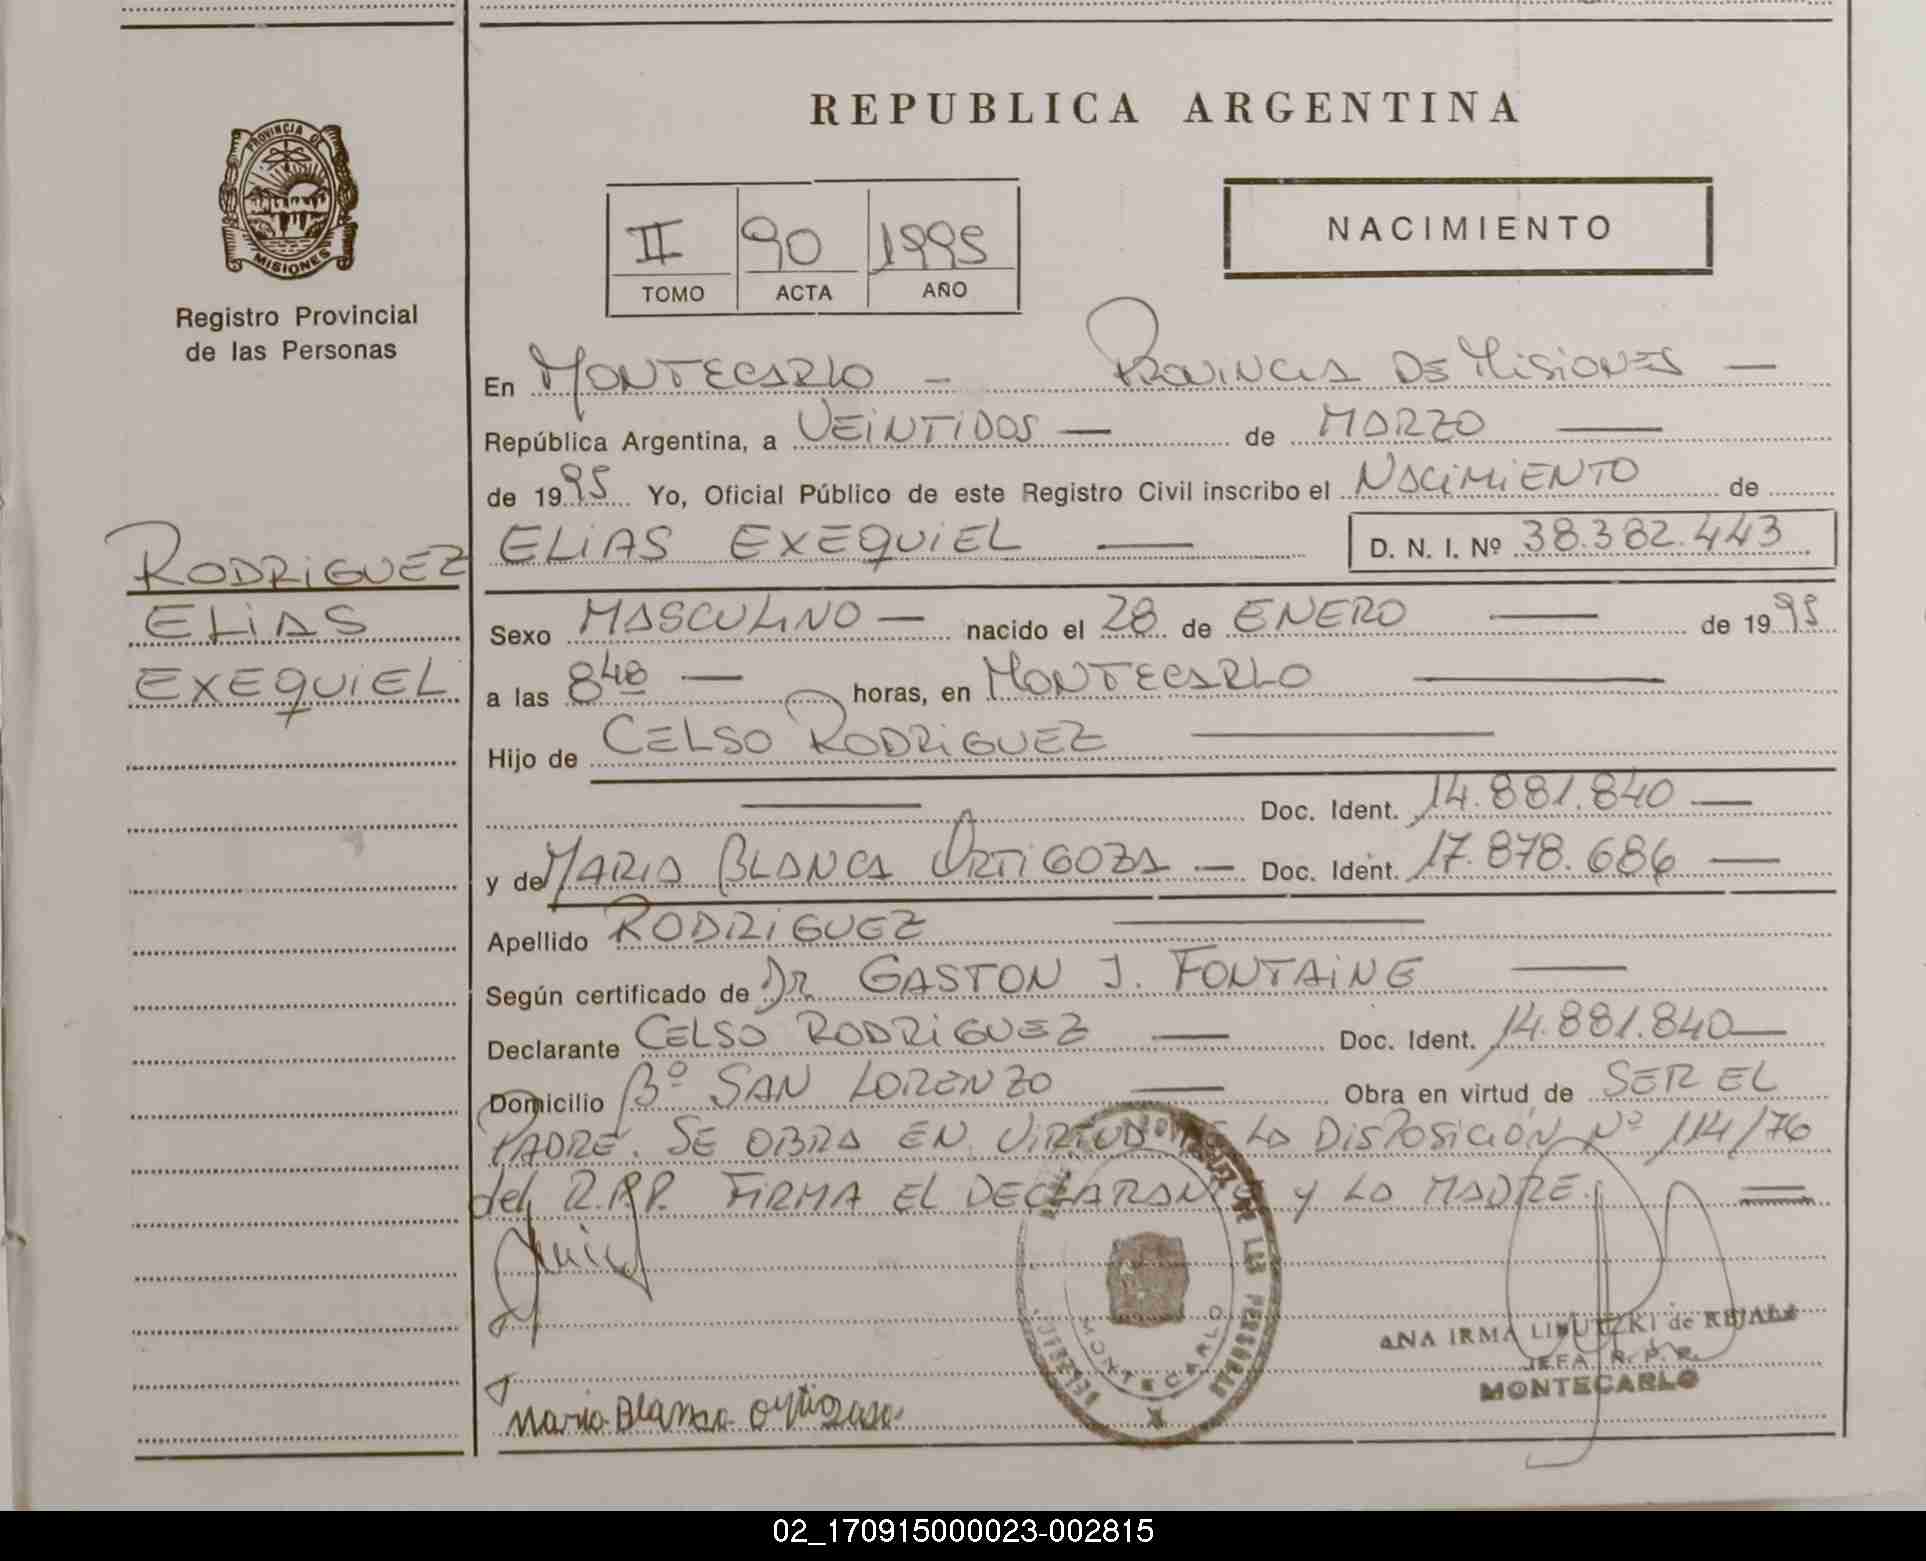 REPUBLICA ARGENTINA
PROVINCIA DE
MISIONES
Registro Provincial
de las Personas
II 90 1995
TOMO ACTA AÑO
NACIMIENTO
En MONTECARLO — PROVINCIA DE MISIONES —
República Argentina, a VEINTIDOS — de MARZO —
de 1995 Yo, Oficial Público de este Registro Civil inscribo el NACIMIENTO de
RODRIGUEZ
ELIAS
EXEQUIEL
ELIAS EXEQUIEL — D. N. I. Nº 38.382.443
Sexo MASCULINO — nacido el 28 de ENERO — de 1995
a las 8 48 — horas, en MONTECARLO —
Hijo de CELSO RODRIGUEZ —
— Doc. Ident. 14.881.840 —
y de MARIA BLANCA ORTIGOZA — Doc. Ident. 17.878.686 —
Apellido RODRIGUEZ —
Según certificado de Dr GASTON J. FONTAINE —
Declarante CELSO RODRIGUEZ — Doc. Ident. 14.881.840 —
Domicilio Bº SAN LORENZO — Obra en virtud de SER EL
PADRE. SE OBRA EN VIRTUD DE LA DISPOSICIÓN Nº 114/76
del R.P.P. FIRMA EL DECLARANTE y LA MADRE. —
DE LAS PERSONAS
MONTECARLO
ANA IRMA de REJALA
JEFA R. P. P.
MONTECARLO
Maria Blanca
02_170915000023-002815